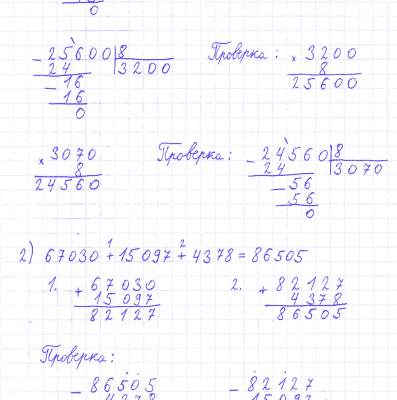 0
- 25600 | 8
24 | 3200
- 16
16
0
Проверка: × 3200
8
25600
× 3070
8
24560
Проверка: - 24560 | 8
24 | 3070
- 56
56
0
2) 67030 + 15097 + 4378 = 86505
1 2
1. + 67030
15097
82127
2. + 82127
4378
86505
Проверка:
- 86505
4378
- 82127
15097